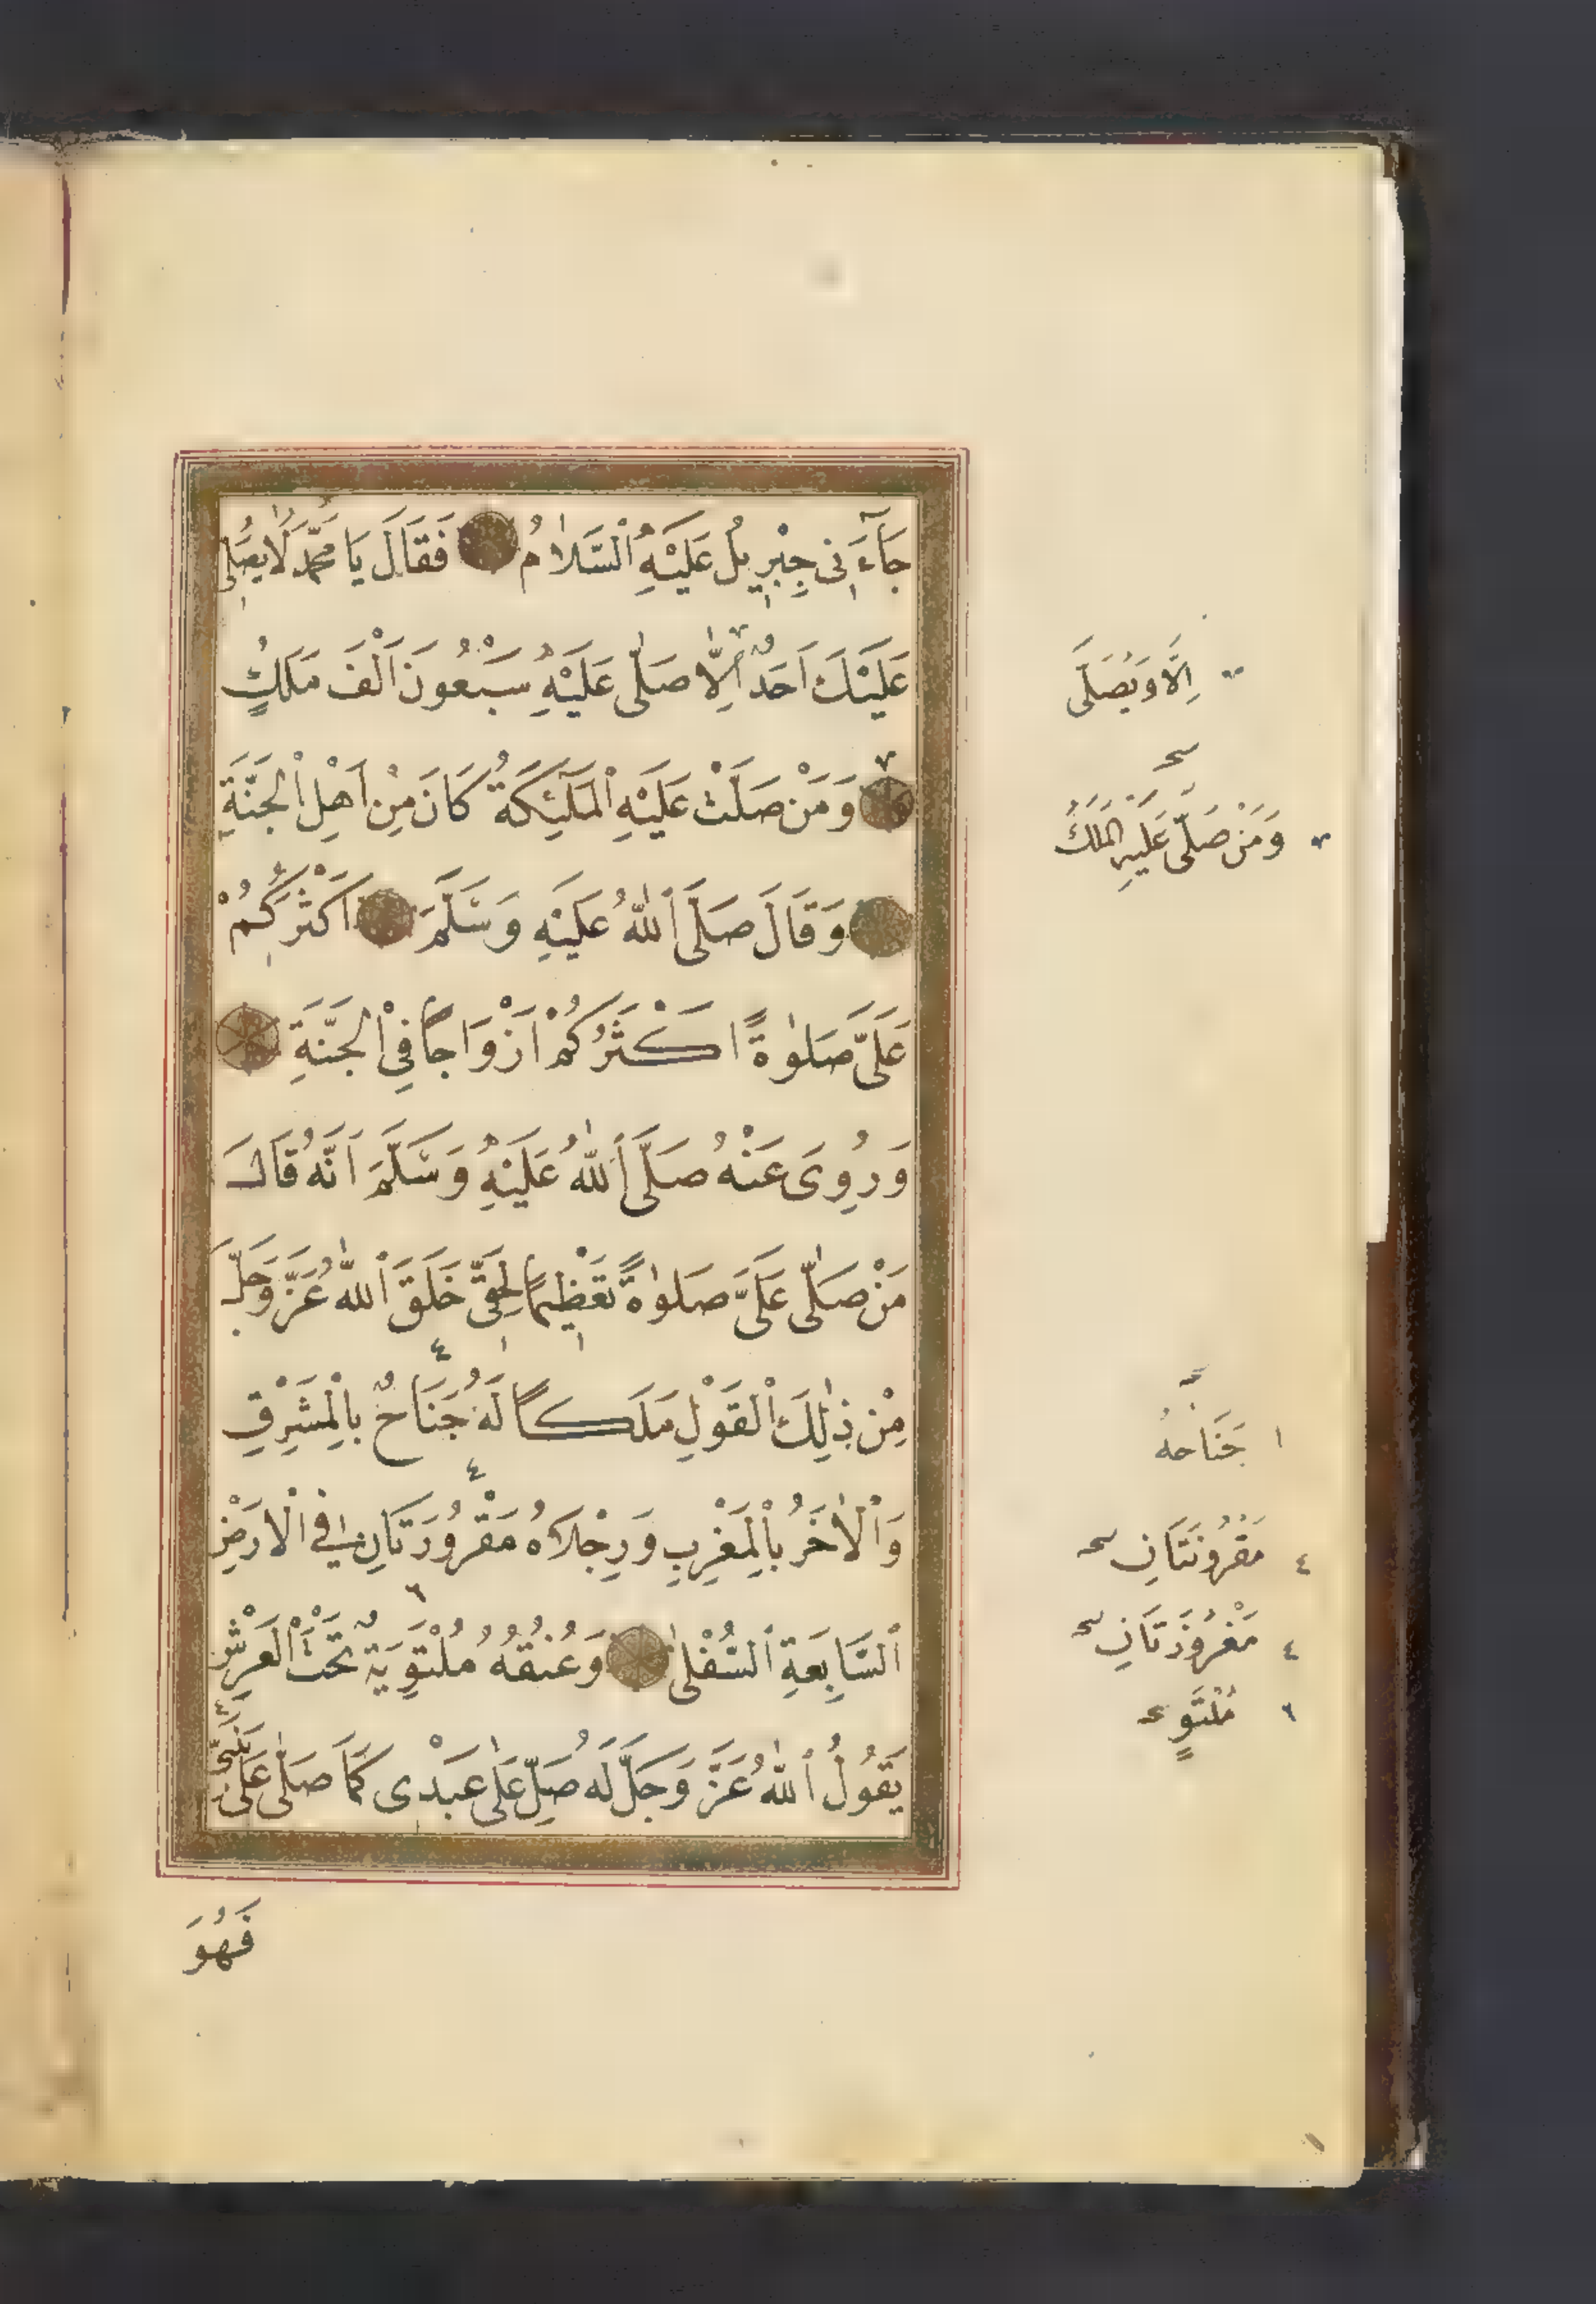 جَآءَنِى جِبْرِيلُ عَلَيْهِ ٱلسَّلَامُ فَقَالَ يَا مُحَمَّدُ لَا يُصَلِّى
عَلَيْكَ اَحَدٌ اِلَّا صَلّٰى عَلَيْهِ سَبْعُونَ اَلْفَ مَلَكٍ
وَمَنْ صَلَّتْ عَلَيْهِ ٱلْمَلٰٓئِكَةُ كَانَ مِنْ اَهْلِ ٱلْجَنَّةِ
وَقَالَ صَلَّى ٱللّٰهُ عَلَيْهِ وَسَلَّمَ اَكْثَرُكُمْ
عَلَىَّ صَلٰوةً اَكْثَرُكُمْ اَزْوَاجًا فِى ٱلْجَنَّةِ
وَرُوِىَ عَنْهُ صَلَّى ٱللّٰهُ عَلَيْهِ وَسَلَّمَ اَنَّهُ قَالَ
مَنْ صَلّٰى عَلَىَّ صَلٰوةً تَعْظِيمًا لِحَقِّى خَلَقَ ٱللّٰهُ عَزَّ وَجَلَّ
مِنْ ذٰلِكَ ٱلْقَوْلِ مَلَكًا لَهُ جَنَاحٌ بِالْمَشْرِقِ
وَٱلْاٰخَرُ بِالْمَغْرِبِ وَرِجْلَاهُ مَقْرُورَتَانِ فِى ٱلْاَرْضِ
ٱلسَّابِعَةِ ٱلسُّفْلٰى وَعُنُقُهُ مُلْتَوِيَةٌ تَحْتَ ٱلْعَرْشِ
يَقُولُ ٱللّٰهُ عَزَّ وَجَلَّ لَهُ صَلِّ عَلٰى عَبْدِى كَمَا صَلّٰى عَلٰى نَبِيِّى
فَهُوَ
اِلَّا وَيُصَلّٰى
وَمَنْ صَلّٰى عَلَيْهِ الْمَلَكُ
١ جَنَاحُهُ
٤ مَقْرُونَتَانِ
٤ مَغْرُوزَتَانِ
٦ مُلْتَوٍ